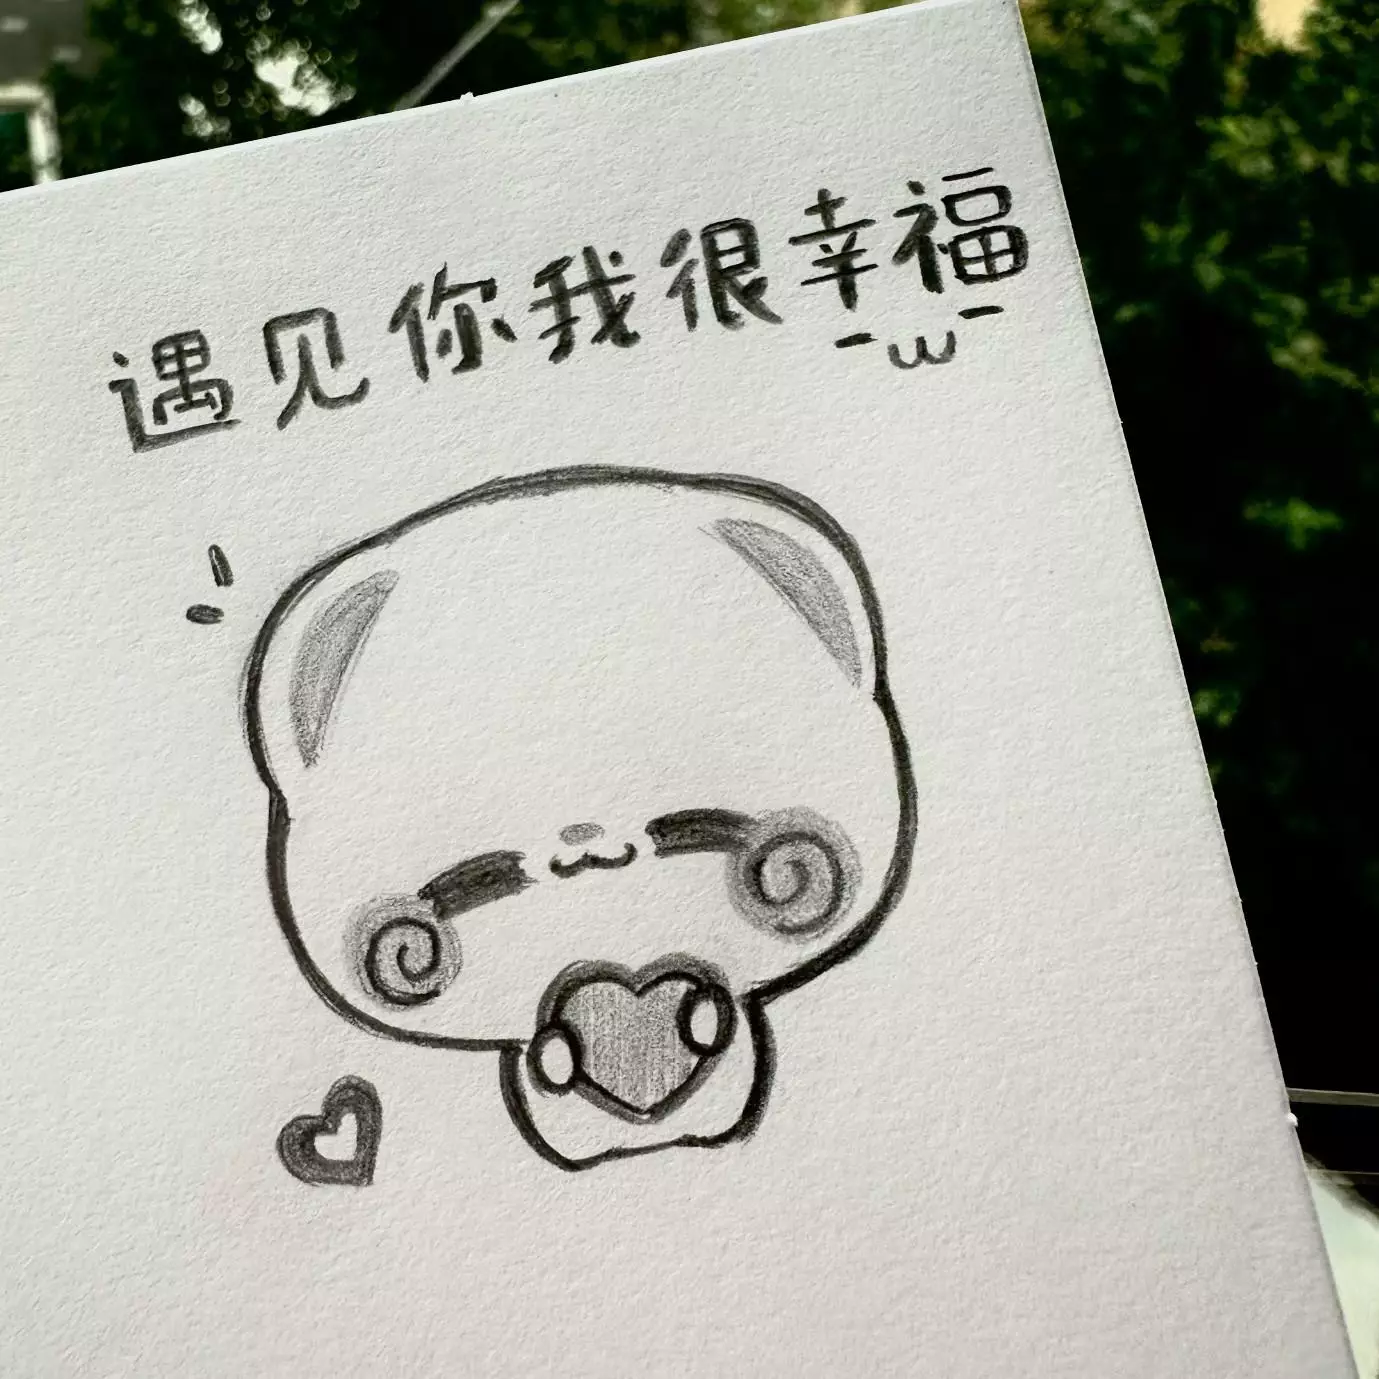 遇见你我很幸福
-ω-